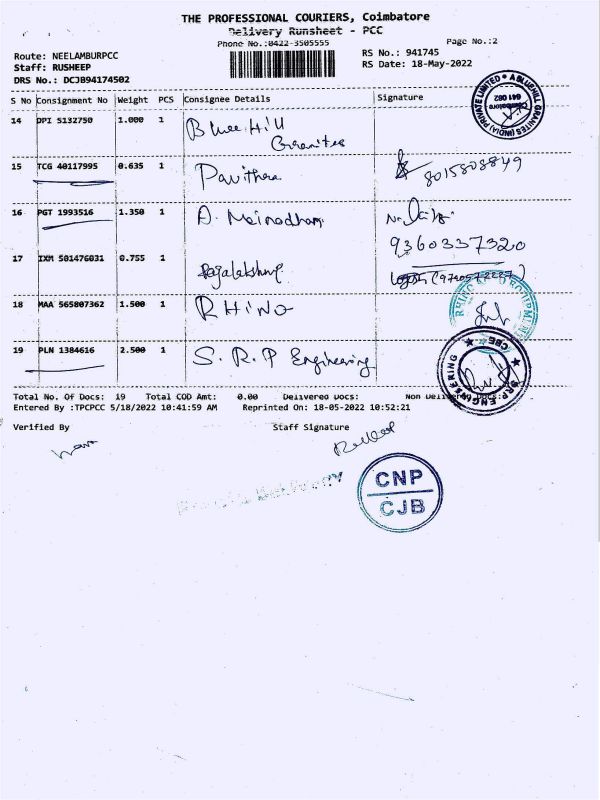 THE PROFESSIONAL COURIERS, Coimbatore
Delivery Runsheet - PCC
Phone No.:0422-3505555 Page No.:2
Route: NEELAMBURPCC RS No.: 941745
Staff: RUSHEEP RS Date: 18-May-2022
DRS No.: DCJB94174502
S No Consignment No Weight PCS Consignee Details Signature
14 DPI 5132750 1.000 1 Blue Hill
Granites
A BLUEHILL GRANITES (INDIA) PRIVATE LIMITED
Coimbatore
641 062
15 TCG 40117995 0.635 1 Pavithra 8015808849
16 PGT 1993516 1.350 1 A. Mainadham
9360337320
17 IXM 501476031 0.755 1 Rajalakshmi
18 MAA 565807362 1.500 1 RHINO
19 PLN 1384616 2.500 1 S.R.P Engineering
SRP ENGINEERING CBE
Total No. Of Docs: 19 Total COD Amt: 0.00 Delivered Docs: Non Delivered Docs:
Entered By :TPCPCC 5/18/2022 10:41:59 AM Reprinted On: 18-05-2022 10:52:21
Verified By Staff Signature
CNP
CJB